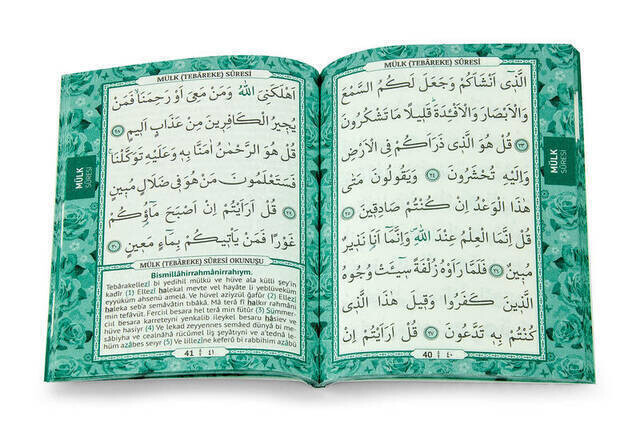 MÜLK (TEBÂREKE) SÛRESİ
اَلَّذٖٓي اَنْشَاَكُمْ وَجَعَلَ لَكُمُ السَّمْعَ
وَالْاَبْصَارَ وَالْاَفْـِٔدَةَ قَلٖيلاً مَا تَشْكُرُونَ
﴿٢٣﴾ قُلْ هُوَ الَّذٖي ذَرَاَكُمْ فِي الْاَرْضِ
وَاِلَيْهِ تُحْشَرُونَ ﴿٢٤﴾ وَيَقُولُونَ مَتٰى
هٰذَا الْوَعْدُ اِنْ كُنْتُمْ صَادِقٖينَ ﴿٢٥﴾
قُلْ اِنَّمَا الْعِلْمُ عِنْدَ اللّٰهِ وَاِنَّمَٓا اَنَا۬ نَذٖيرٌ
مُبٖينٌ ﴿٢٦﴾ فَلَمَّا رَاَوْهُ زُلْفَةً سٖٓيـَٔتْ وُجُوهُ
الَّذٖينَ كَفَرُوا وَقٖيلَ هٰذَا الَّذٖي
كُنْتُمْ بِهٖ تَدَّعُونَ ﴿٢٧﴾ قُلْ اَرَاَيْتُمْ اِنْ
40 ٤٠
MÜLK
SÛRESİ
MÜLK (TEBÂREKE) SÛRESİ
اَهْلَكَنِيَ اللّٰهُ وَمَنْ مَعِيَ اَوْ رَحِمَنَا فَمَنْ
يُجٖيرُ الْكَافِرٖينَ مِنْ عَذَابٍ اَلٖيمٍ ﴿٢٨﴾
قُلْ هُوَ الرَّحْمٰنُ اٰمَنَّا بِهٖ وَعَلَيْهِ تَوَكَّلْنَا
فَسَتَعْلَمُونَ مَنْ هُوَ فٖي ضَلَالٍ مُبٖينٍ
﴿٢٩﴾ قُلْ اَرَاَيْتُمْ اِنْ اَصْبَحَ مَٓاؤُ۬كُمْ
غَوْرًا فَمَنْ يَأْتٖيكُمْ بِمَٓاءٍ مَعٖينٍ ﴿٣٠﴾
MÜLK (TEBÂREKE) SÛRESİ OKUNUŞU
Bismillâhirrahmânirrahym.
Tebârakellezî bi yedihil mülkü ve hüve ala külli şey'in
kadîr (1) Ellezî halekal mevte vel hayâte li yeblüveküm
eyyüküm ahsenü amelâ. Ve hüvel azîyzül ğafûr (2) Ellezî
haleka seb'a semâvâtin tıbâkâ. Mâ terâ fî halkır rahmâni
min tefâvüt. Ferciıl besara hel terâ min fütûr (3) Sümmer-
ciıl besara karreteyni yenkalib ileykel besaru hâsiev ve
hüve hasîyr (4) Ve lekad zeyyennes semâed dünyâ bi me-
sâbîyha ve cealnâhâ rucûmel lişşeyâtîyni ve a'tednâ le-
hüm azâbes seîyr (5) Ve lillezîne keferû bi rabbihim azâbü
41 ٤١
MÜLK
SÛRESİ